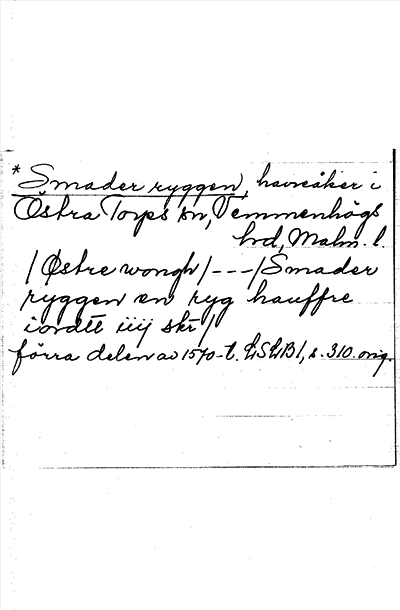 *Smader ryggen, havreåker i
Östra Torps sn, Vemmenhögs
hd, Malm. l.
/Østre wongh/---/Smader
ryggen en ryg hauffre
iordtt iiij skr/
förra delen av 1570-t. LiSLB1, s. 310. orig.